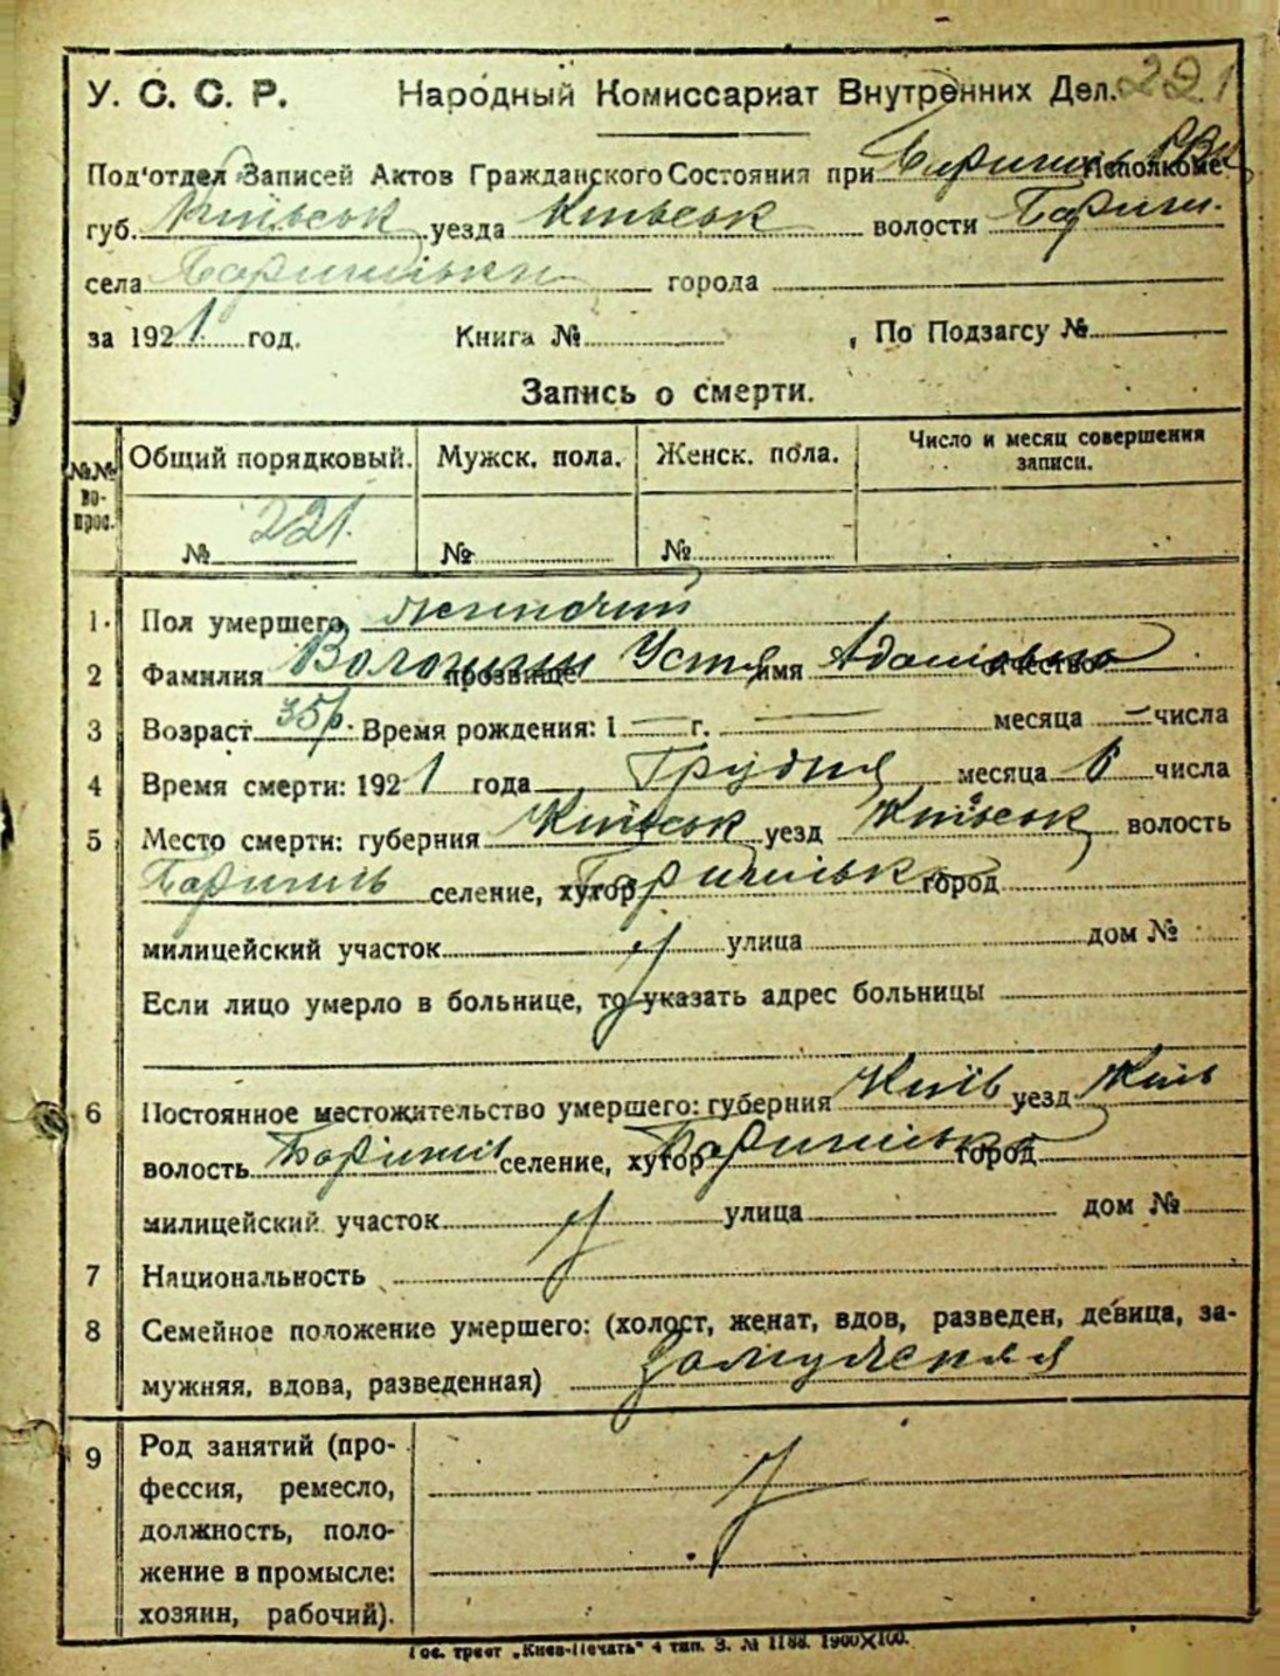 У. С. С. Р. Народный Комиссариат Внутренних Дел. 221
Под'отдел Записей Актов Гражданского Состояния при Исполкоме
губ. Київськ уезда Київськ волости Бариш.
села города
за 1921 год. Книга № , По Подзагсу №
Запись о смерти.
№№ вопрос. Общий порядковый. Мужск. пола. Женск. пола. Число и месяц совершения записи.
№ 221. № №
1. Пол умершего жіночий
2 Фамилия прозвище Устя имя Адамовна отчество
3 Возраст 35 р. Время рождения: 1 — г. — месяца — числа
4 Время смерти: 1921 года Грудня месяца 6 числа
5 Место смерти: губерния Київськ уезд Київськ волость
селение, хутор город
милицейский участок улица дом №
Если лицо умерло в больнице, то указать адрес больницы
6 Постоянное местожительство умершего: губерния Київ уезд Київ
волость селение, хутор город
милицейский участок улица дом №
7 Национальность
8 Семейное положение умершего: (холост, женат, вдов, разведен, девица, за-
мужняя, вдова, разведенная) замужняя
9 Род занятий (про-
фессия, ремесло,
должность, поло-
жение в промысле:
хозяин, рабочий).
Гос. трест „Киев-Печать" 4 тип. З. № 1188. 1900×100.